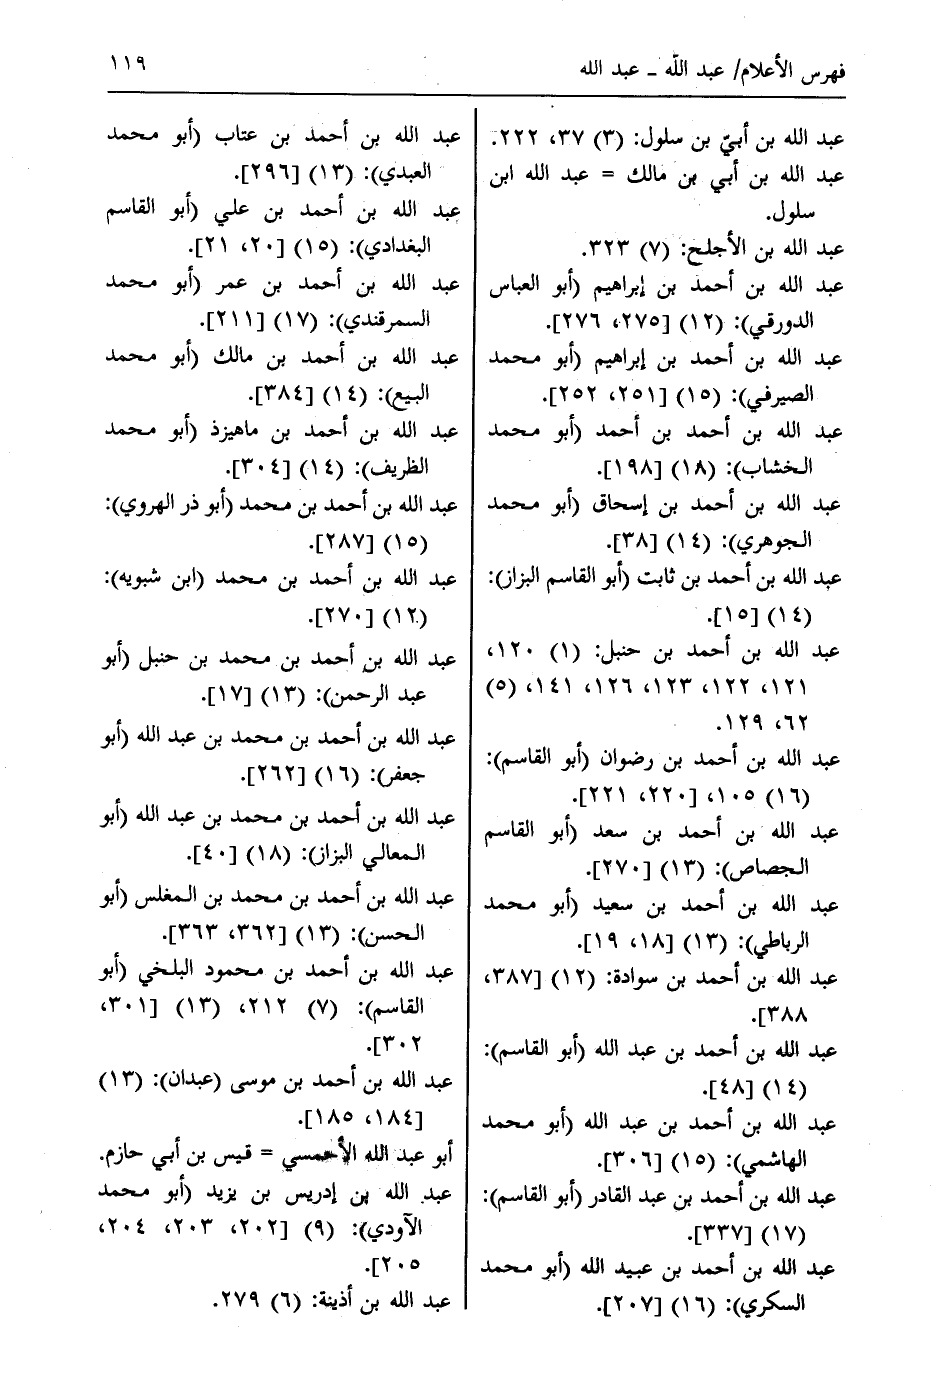 فهرس الأعلام/ عبد الله ـ عبد الله
١١٩
عبد الله بن أبيّ بن سلول: (٣) ٣٧، ٢٢٢.
عبد الله بن أبي بن مالك = عبد الله ابن
سلول.
عبد الله بن الأجلح: (٧) ٣٢٣.
عبد الله بن أحمد بن إبراهيم (أبو العباس
الدورقي): (١٢) [٢٧٥، ٢٧٦].
عبد الله بن أحمد بن إبراهيم (أبو محمد
الصيرفي): (١٥) [٢٥١، ٢٥٢].
عبد الله بن أحمد بن أحمد (أبو محمد
الخشاب): (١٨) [١٩٨].
عبد الله بن أحمد بن إسحاق (أبو محمد
الجوهري): (١٤) [٣٨].
عبد الله بن أحمد بن ثابت (أبو القاسم البزاز):
(١٤) [١٥].
عبد الله بن أحمد بن حنبل: (١) ١٢٠،
١٢١، ١٢٢، ١٢٣، ١٢٦، ١٤١، (٥)
٦٢، ١٢٩.
عبد الله بن أحمد بن رضوان (أبو القاسم):
(١٦) ١٠٥، [٢٢٠، ٢٢١].
عبد الله بن أحمد بن سعد (أبو القاسم
الجصاص): (١٣) [٢٧٠].
عبد الله بن أحمد بن سعيد (أبو محمد
الرباطي): (١٣) [١٨، ١٩].
عبد الله بن أحمد بن سوادة: (١٢) [٣٨٧،
٣٨٨].
عبد الله بن أحمد بن عبد الله (أبو القاسم):
(١٤) [٤٨].
عبد الله بن أحمد بن عبد الله (أبو محمد
الهاشمي): (١٥) [٣٠٦].
عبد الله بن أحمد بن عبد القادر (أبو القاسم):
(١٧) [٣٣٧].
عبد الله بن أحمد بن عبيد الله (أبو محمد
السكري): (١٦) [٢٠٧].
عبد الله بن أحمد بن عتاب (أبو محمد
العبدي): (١٣) [٢٩٦].
عبد الله بن أحمد بن علي (أبو القاسم
البغدادي): (١٥) [٢٠، ٢١].
عبد الله بن أحمد بن عمر (أبو محمد
السمرقندي): (١٧) [٢١١].
عبد الله بن أحمد بن مالك (أبو محمد
البيع): (١٤) [٣٨٤].
عبد الله بن أحمد بن ماهيزذ (أبو محمد
الظريف): (١٤) [٣٠٤].
عبد الله بن أحمد بن محمد (أبو ذر الهروي):
(١٥) [٢٨٧].
عبد الله بن أحمد بن محمد (ابن شبويه):
(١٢) [٢٧٠].
عبد الله بن أحمد بن محمد بن حنبل (أبو
عبد الرحمن): (١٣) [١٧].
عبد الله بن أحمد بن محمد بن عبد الله (أبو
جعفر): (١٦) [٢٦٢].
عبد الله بن أحمد بن محمد بن عبد الله (أبو
المعالي البزاز): (١٨) [٤٠].
عبد الله بن أحمد بن محمد بن المغلس (أبو
الحسن): (١٣) [٣٦٢، ٣٦٣].
عبد الله بن أحمد بن محمود البلخي (أبو
القاسم): (٧) ٢١٢، (١٣) [٣٠١،
٣٠٢].
عبد الله بن أحمد بن موسى (عبدان): (١٣)
[١٨٤، ١٨٥].
أبو عبد الله الأحمسي = قيس بن أبي حازم.
عبد الله بن إدريس بن يزيد (أبو محمد
الآودي): (٩) [٢٠٢، ٢٠٣، ٢٠٤،
٢٠٥].
عبد الله بن أذينة: (٦) ٢٧٩.